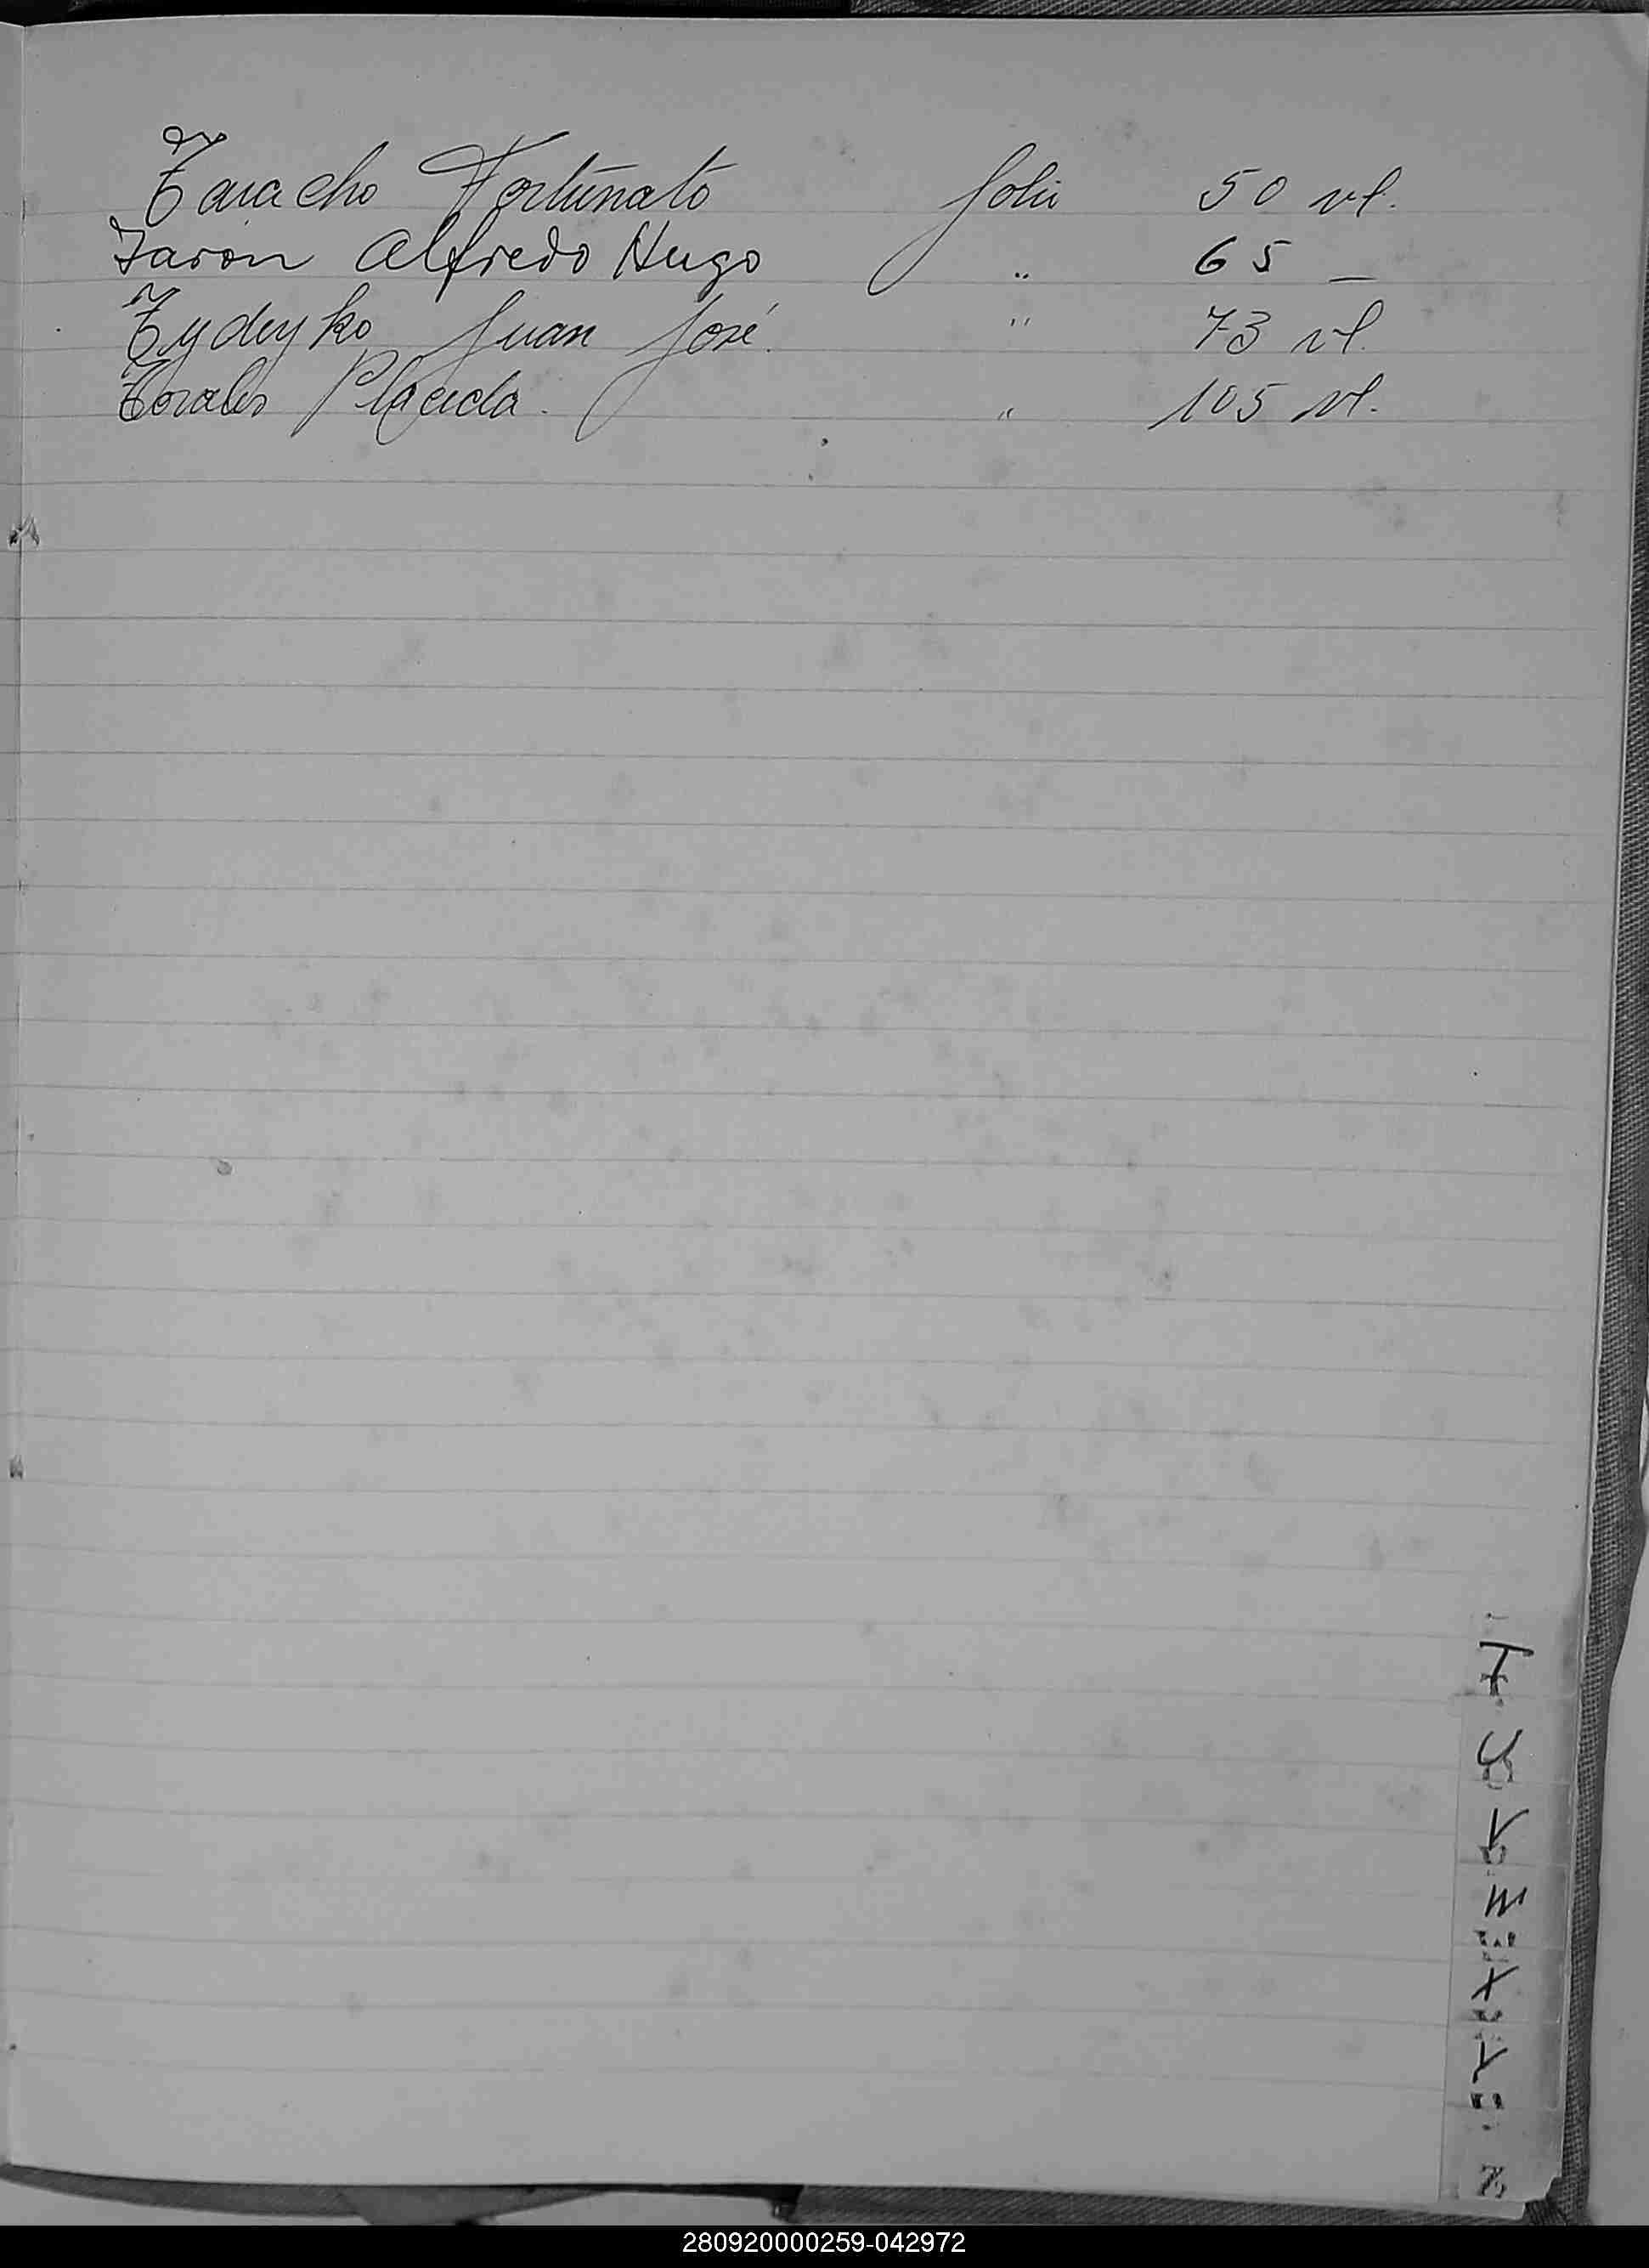 Taracho Fortunato folio 50 vl.
Taron Alfredo Hugo " 65 _
Tydeyko Juan José. " 73 vl.
Torales Placida. " 105 vl.
T
U
V
W
X
Y
Z
280920000259-042972